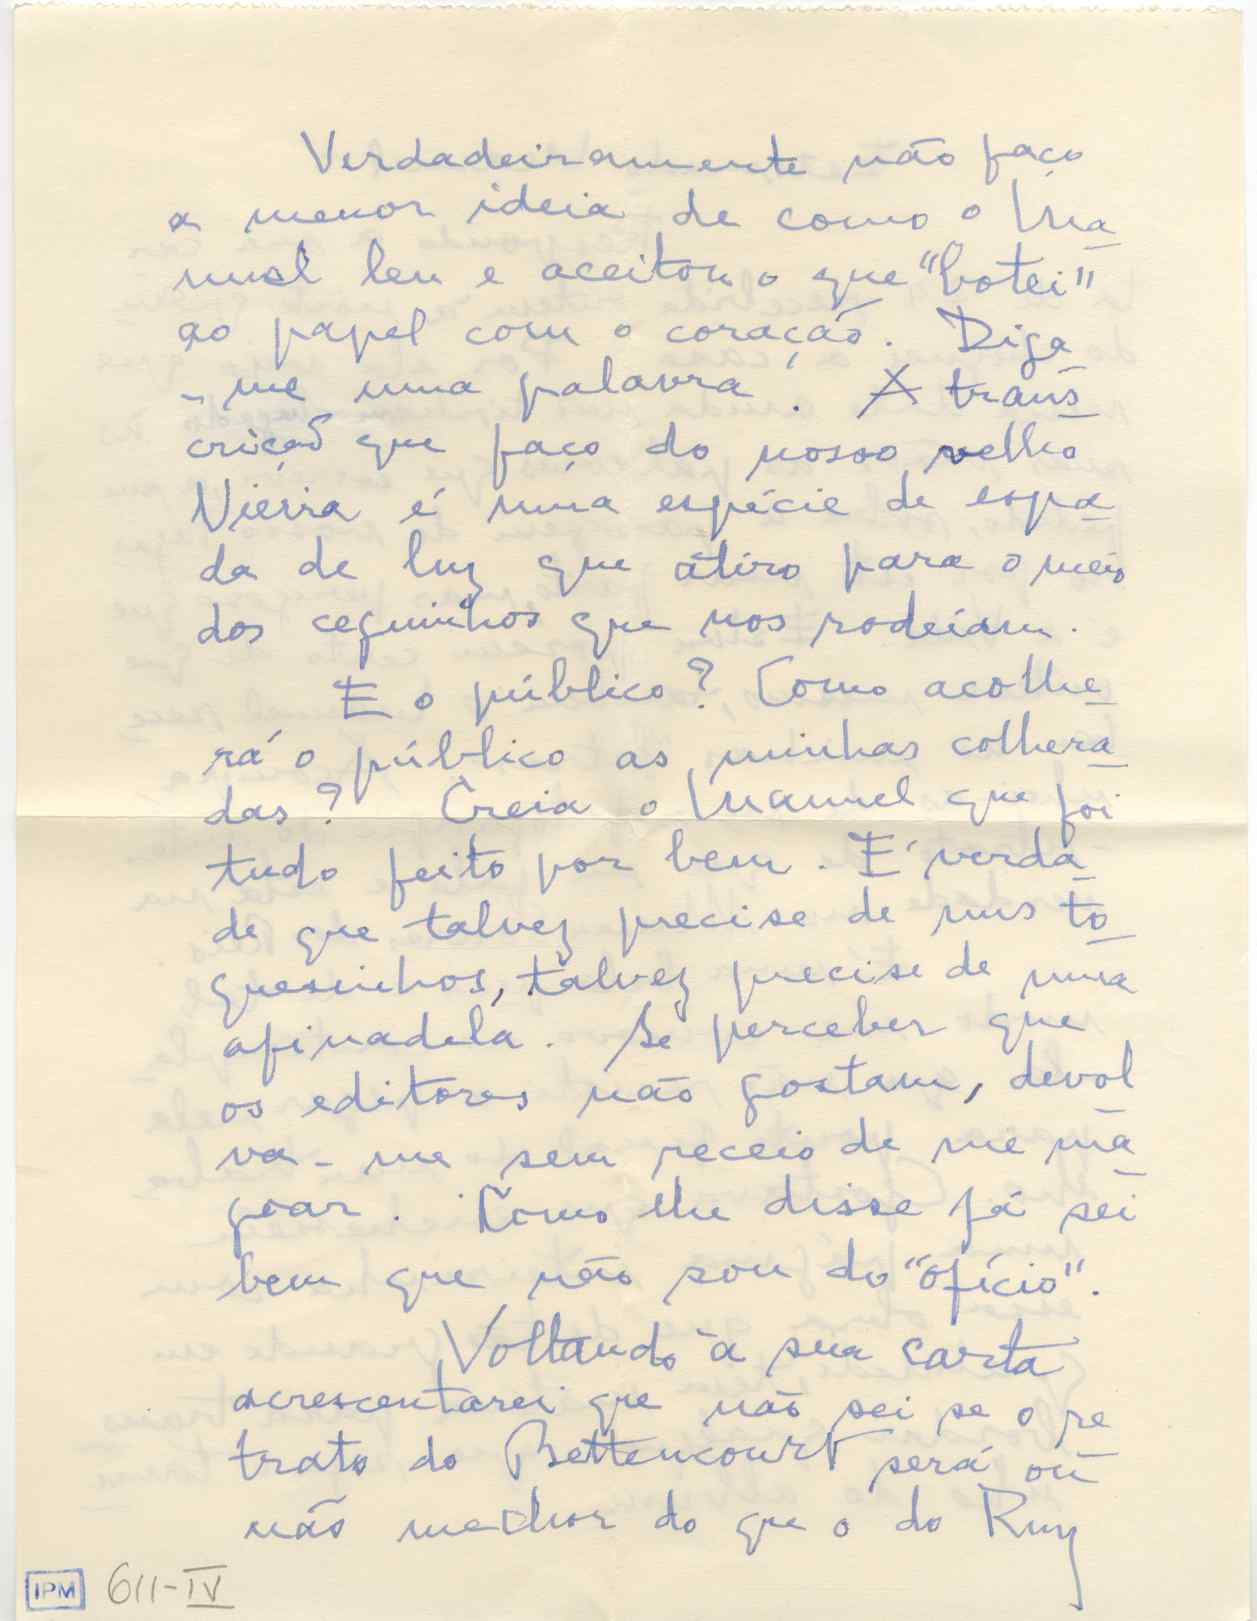 Verdadeiramente não faço
a menor ideia de como o Ma
nuel leu e aceitou o que "botei"
ao papel com o coração. Diga
-me uma palavra! A trans
crição que faço do nosso velho
Vieira é uma espécie de espa
da de luz que atiro para o meio
dos ceguinhos que nos rodeiam.
E o público? Como acolhe
rá o público as minhas colhera
das? Creia o Manuel que foi
tudo feito por bem. É verda
de que talvez precise de uns to
quesinhos, talvez precise de uma
afinadela. Se perceber que
os editores não gostam, devol
va-me sem receio de me ma
goar. Como lhe disse já sei
bem que não sou do "ofício".
Voltando à sua carta
acrescentarei que não sei se o re
trato do Bettencourt será ou
não melhor do que o do Ruy
IPM 611-IV